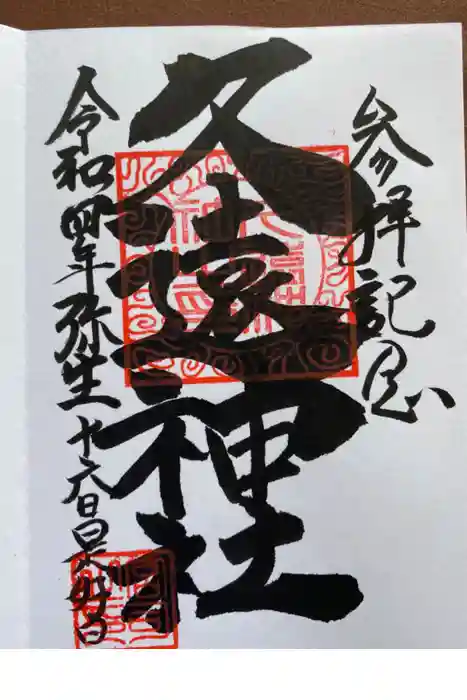 参拝記念
久遠神社
令和四年弥生十六日日是好日